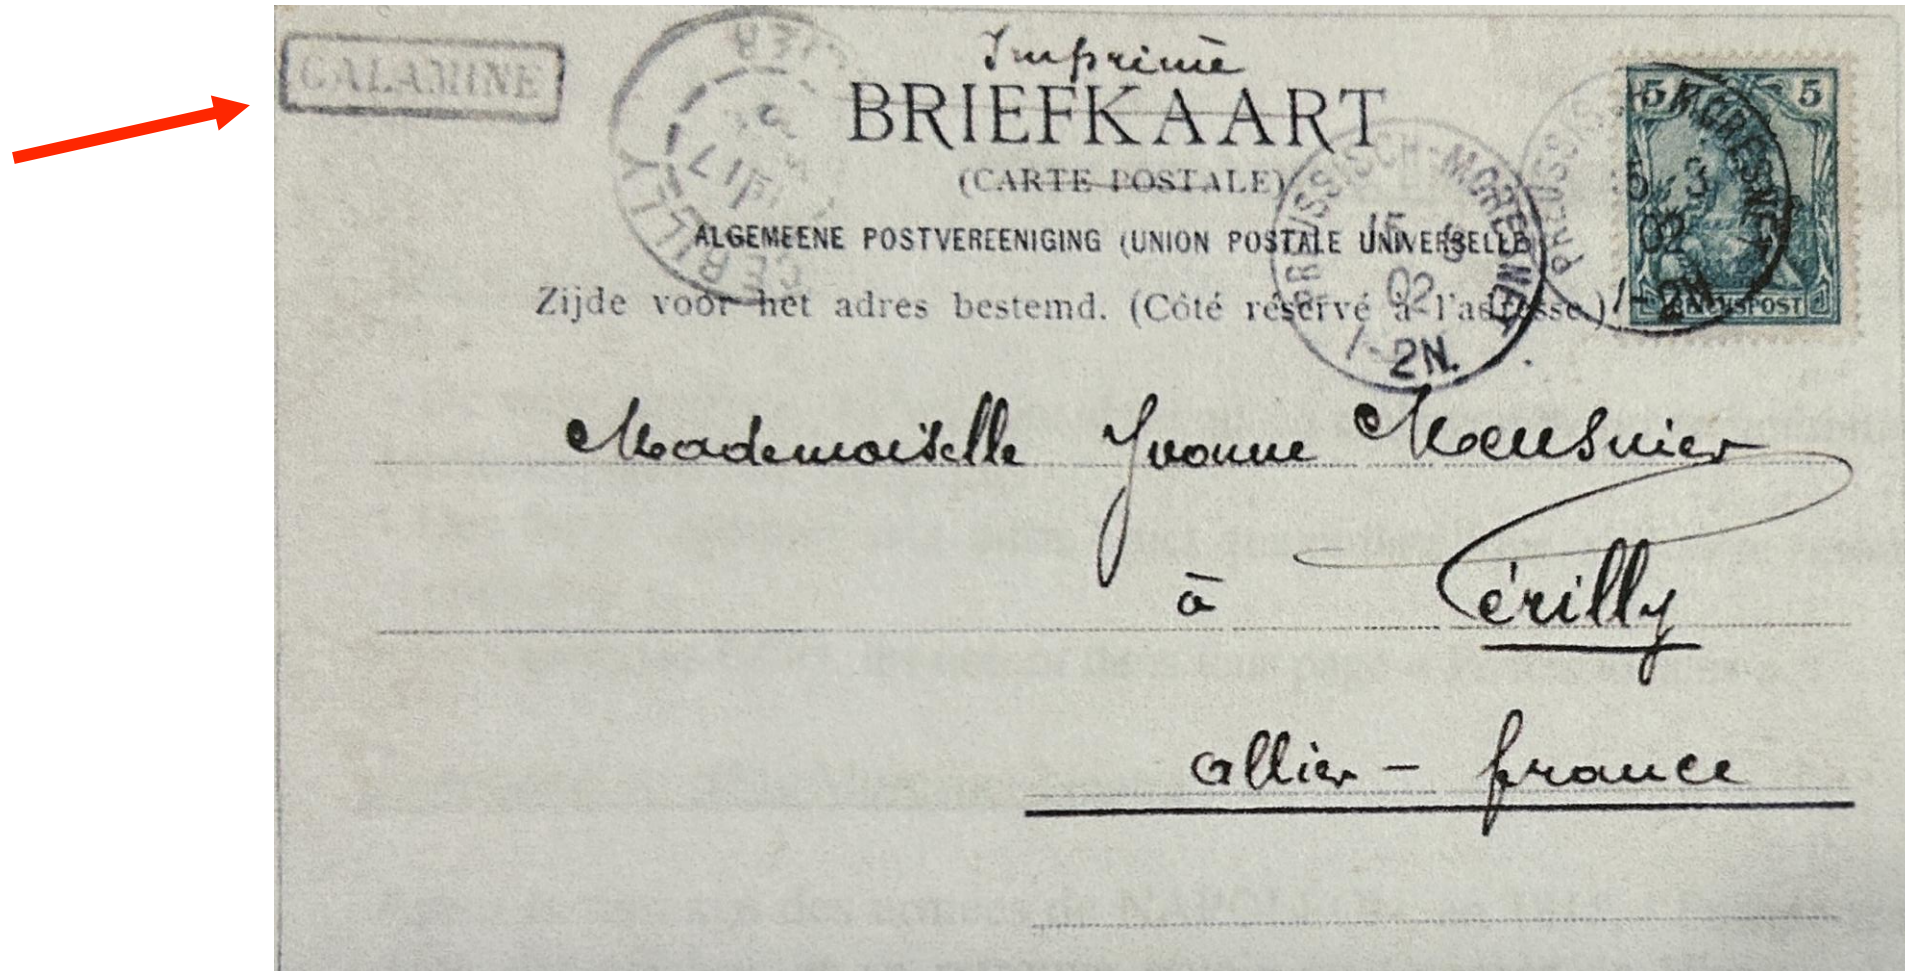 CALAMINE
CERILLY
Imprimé
BRIEFKAART
(CARTE POSTALE)
ALGEMEENE POSTVEREENIGING (UNION POSTALE UNIVERSELLE)
Zijde voor het adres bestemd. (Côté réservé à l'adresse.)
PREUSSISCH-MORESNET
15 3
02
1-2N.
5 5
REICHSPOST
PREUSSISCH-MORESNET
02
1-2N
Mademoiselle Yvonne Meusnier
à Cérilly
Allier - france